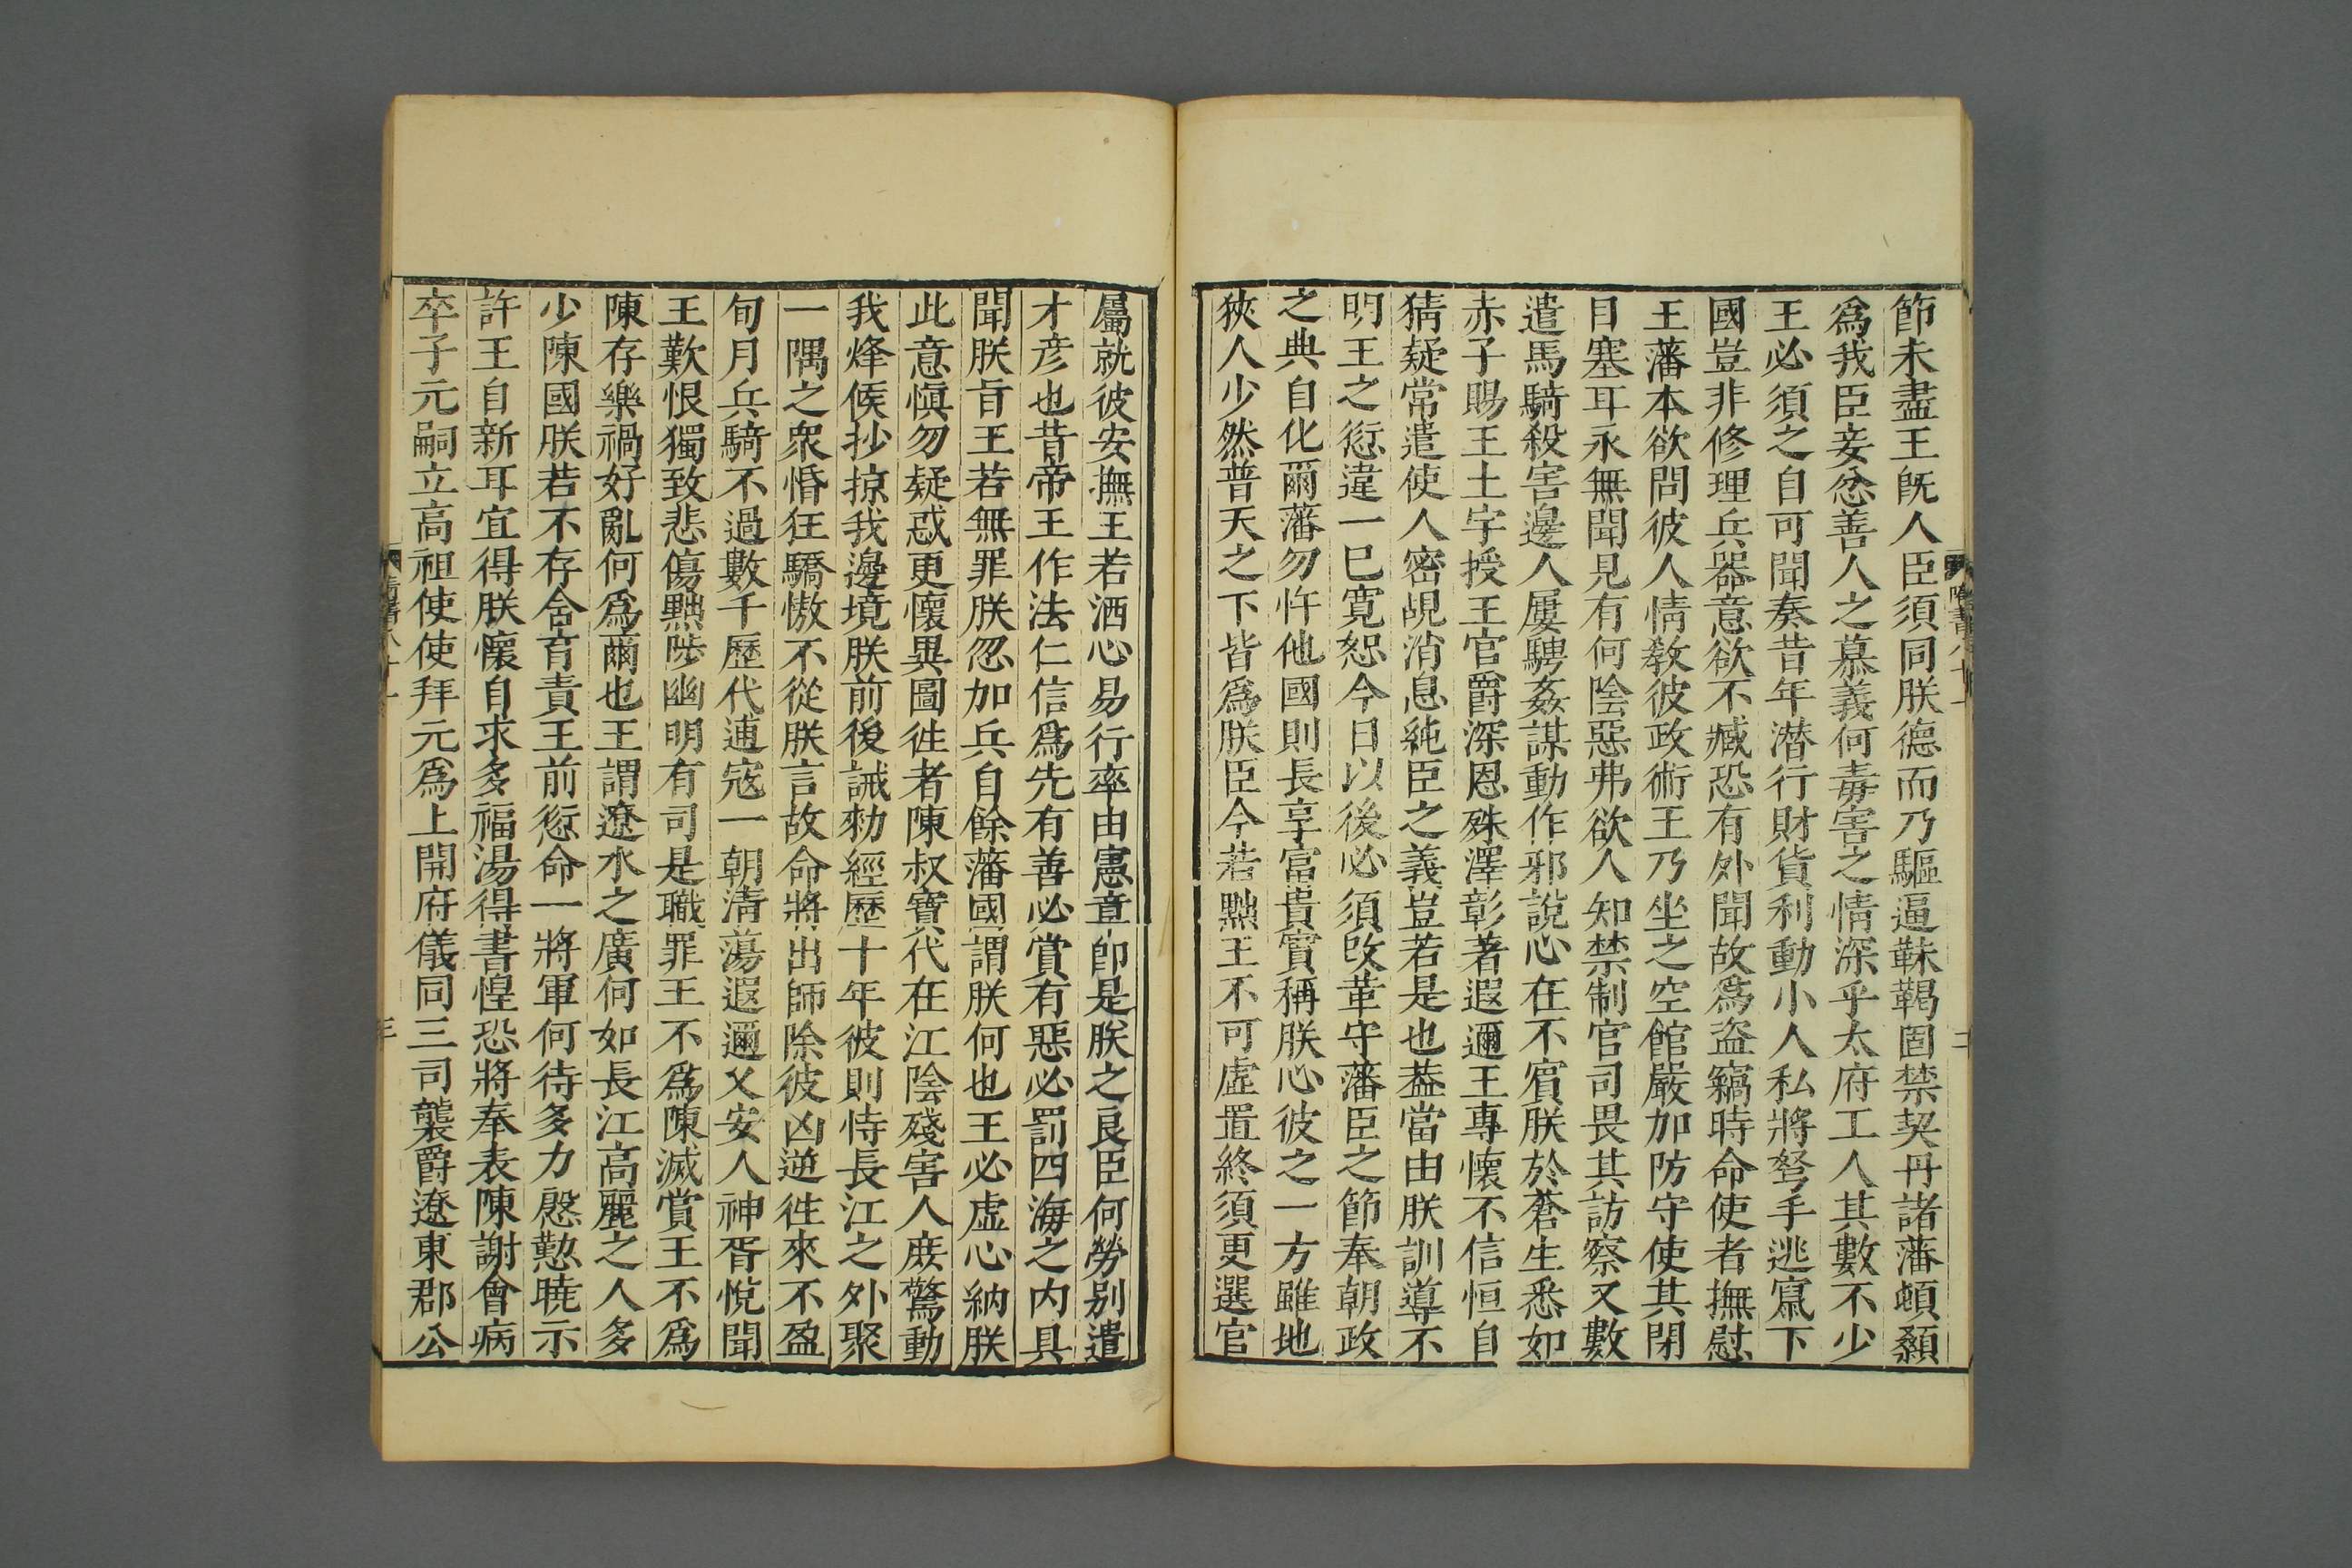 節未盡王旣人臣須同朕德而乃驅逼靺鞨固禁契丹諸藩頓顙
爲我臣妾忿善人之慕義何毒害之情深乎太府工人其數不少
王必須之自可聞奏昔年潜行財貨利動小人私將弩手逃竄下
國豈非修理兵器意欲不臧恐有外聞故爲盗竊時命使者撫慰
王藩本欲問彼人情敎彼政術王乃坐之空館嚴加防守使其閉
目塞耳永無聞見有何陰惡弗欲人知禁制官司畏其訪察又數
遣馬騎殺害邊人屢騁姦謀動作邪說心在不賔朕於蒼生悉如
赤子賜王土宇授王官爵深恩殊澤彰著遐邇王專懷不信恒自
猜疑常遣使人密覘消息純臣之義豈若是也葢當由朕訓導不
明王之愆違一已寛恕今日以後必須改革守藩臣之節奉朝政
之典自化爾藩勿忤他國則長享富貴實稱朕心彼之一方雖地
狹人少然普天之下皆爲朕臣今若黜王不可虛置終須更選官
屬就彼安撫王若洒心易行率由憲章卽是朕之良臣何勞别遣
才彦也昔帝王作法仁信爲先有善必賞有惡必罰四海之内具
聞朕㫖王若無罪朕忽加兵自餘藩國謂朕何也王必虛心納朕
此意愼勿疑惑更懷異圖徃者陳叔寶代在江陰殘害人庶驚動
我烽候抄掠我邊境朕前後誡勑經歷十年彼則恃長江之外聚
一隅之衆惛狂驕慠不從朕言故命將出師除彼凶逆徃來不盈
旬月兵騎不過數千歷代逋寇一朝清蕩遐邇乂安人神胥悅聞
王歎恨獨致悲傷黜陟幽明有司是職罪王不爲陳滅賞王不爲
陳存樂禍好亂何爲爾也王謂遼水之廣何如長江高麗之人多
少陳國朕若不存含育責王前愆命一將軍何待多力慇懃曉示
許王自新耳宜得朕懷自求多福湯得書惶恐將奉表陳謝會病
卒子元嗣立高祖使使拜元爲上開府儀同三司襲爵遼東郡公